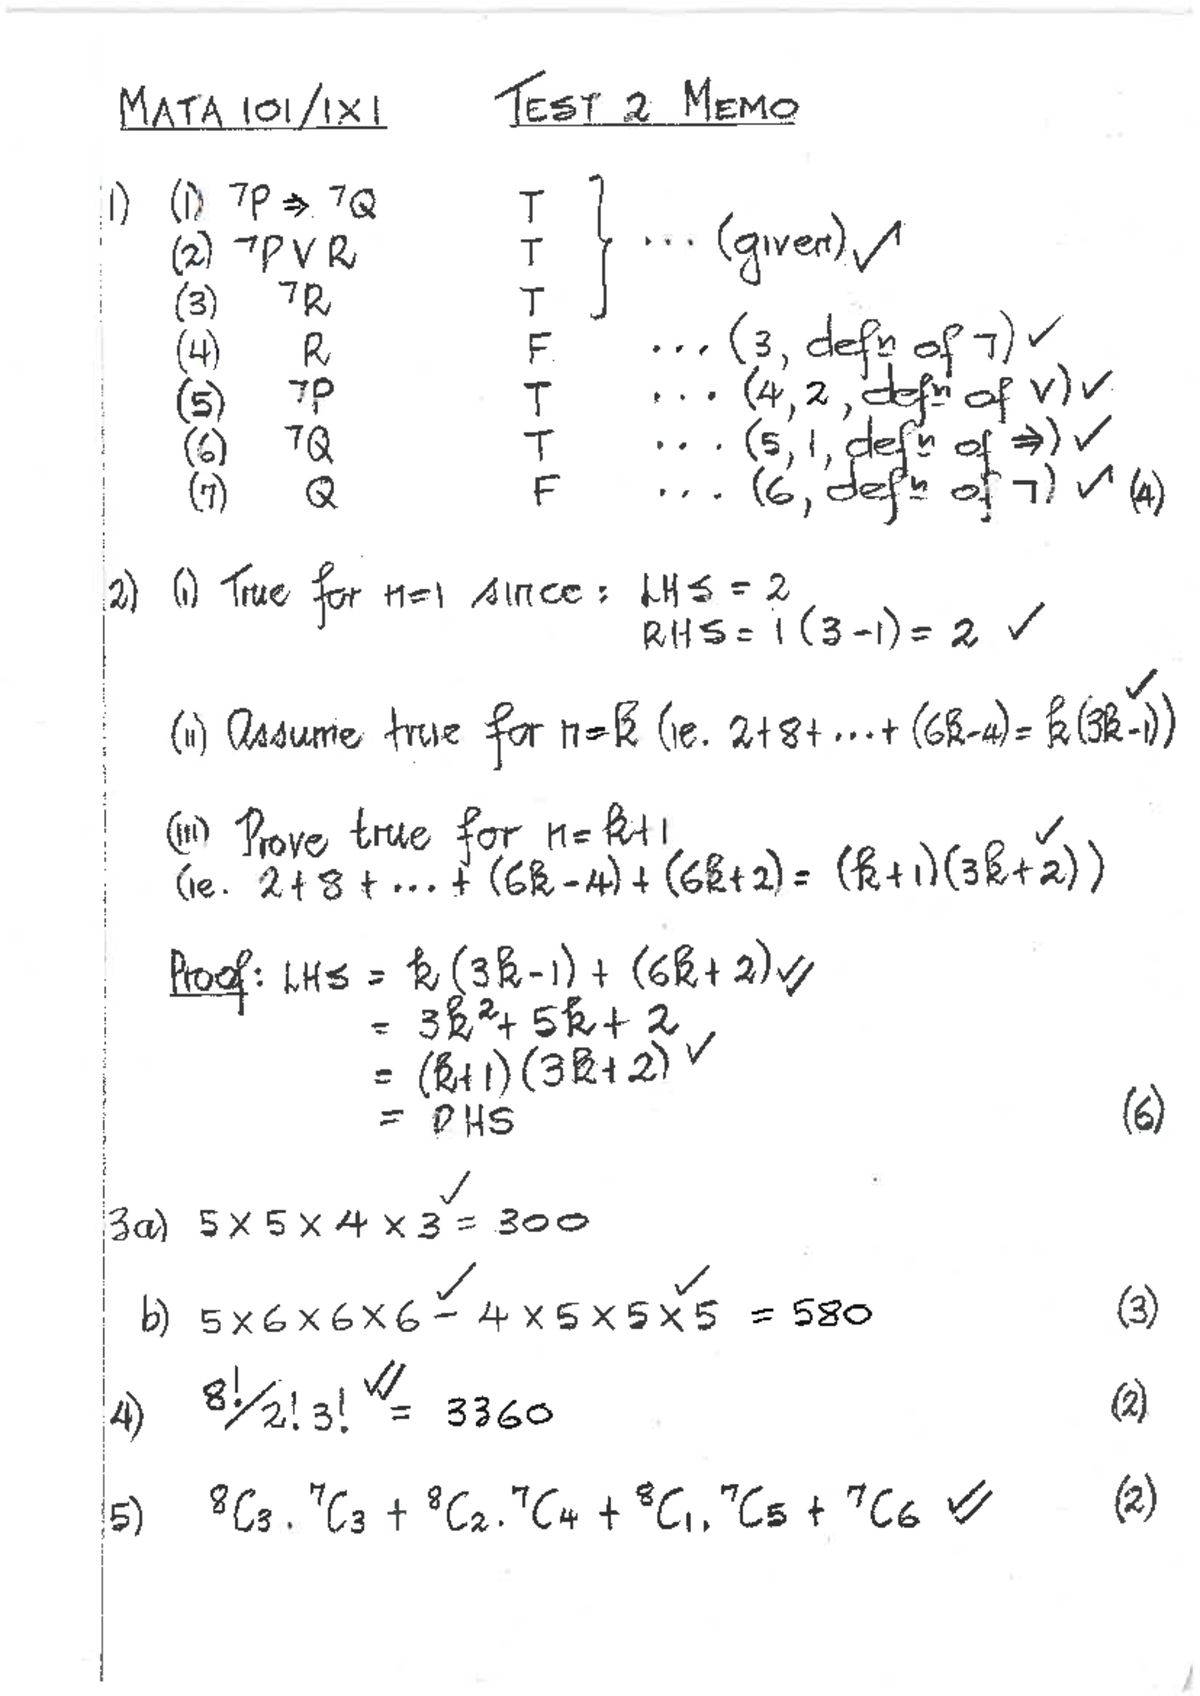 MATA 101/1X1 TEST 2 MEMO
1) (1) ¬P ⇒ ¬Q T
(2) ¬P ∨ R T } ... (given) ✓
(3) ¬R T
(4) R F ... (3, defn of ¬) ✓
(5) ¬P T ... (4, 2, defn of ∨) ✓
(6) ¬Q T ... (5, 1, defn of ⇒) ✓
(7) Q F ... (6, defn of ¬) ✓ (4)
2) (i) True for n=1 since: LHS = 2
RHS = 1(3-1) = 2 ✓
(ii) Assume true for n=k (ie. 2+8+...+(6k-4) = k(3k-1)) ✓
(iii) Prove true for n=k+1
(ie. 2+8+...+(6k-4)+(6k+2) = (k+1)(3k+2)) ✓
Proof: LHS = k(3k-1) + (6k+2) ✓✓
= 3k²+5k+2
= (k+1)(3k+2) ✓
= RHS (6)
3a) 5×5×4×3 ✓ = 300
b) 5×6×6×6 ✓ - 4×5×5×5 ✓ = 580 (3)
4) 8!/2!3! ✓✓ = 3360 (2)
5) ⁸C₃.⁷C₃ + ⁸C₂.⁷C₄ + ⁸C₁.⁷C₅ + ⁷C₆ ✓✓ (2)